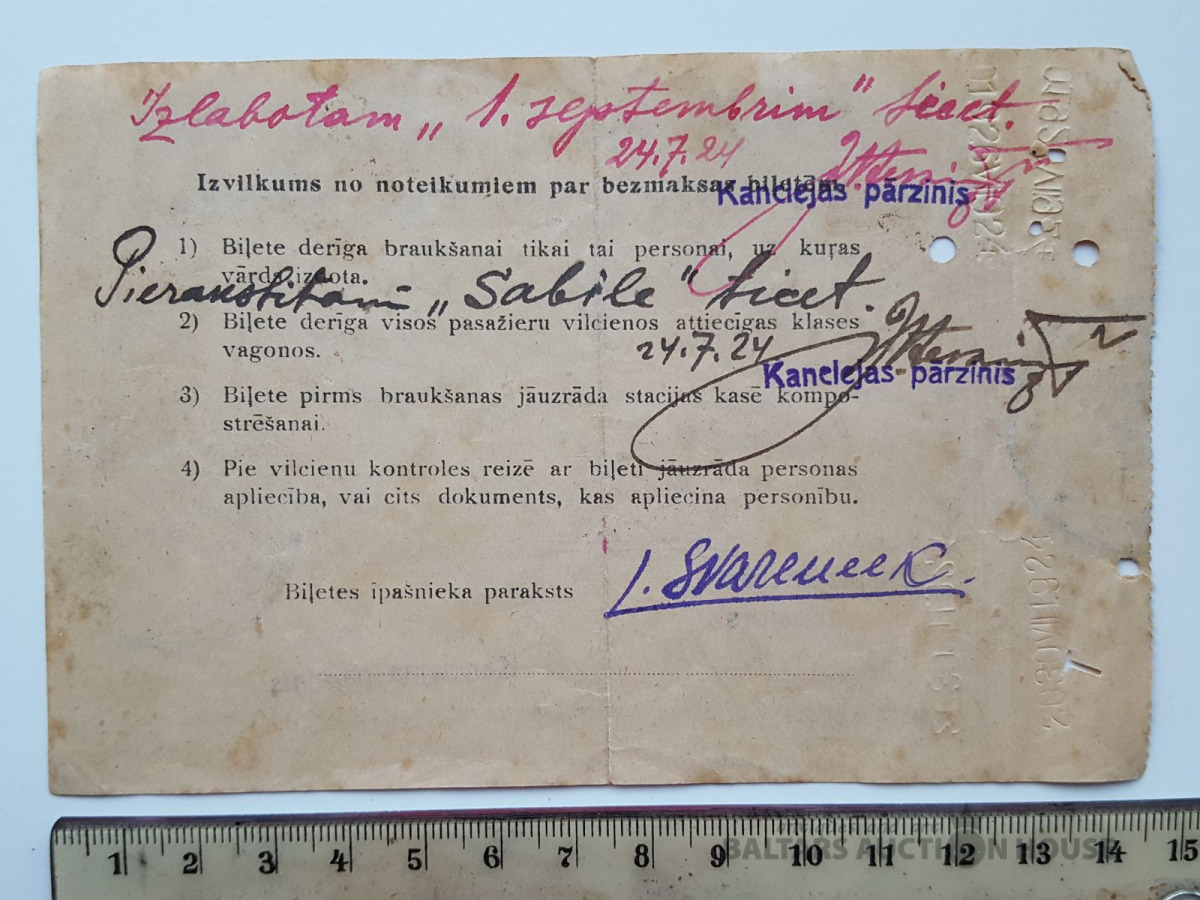 Izlabotam „1. septembrim" ticet.
24.7.24
Izvilkums no noteikumiem par bezmaksas biļetēm.
Kanclejas pārzinis
1) Biļete derīga braukšanai tikai tai personai, uz kuŗas
vārda izdota.
Pierakstitam „Sabile" ticet.
2) Biļete derīga visos pasažieru vilcienos attiecīgas klases
vagonos.
24.7.24
Kanclejas pārzinis
3) Biļete pirms braukšanas jāuzrāda stacijas kasē kompo-
strēšanai.
4) Pie vilcienu kontroles reizē ar biļeti jāuzrāda personas
apliecība, vai cits dokuments, kas apliecina personību.
Biļetes īpašnieka paraksts
1 2 3 4 5 6 7 8 9 10 11 12 13 14 15
BALTARS AUCTION HOUSE